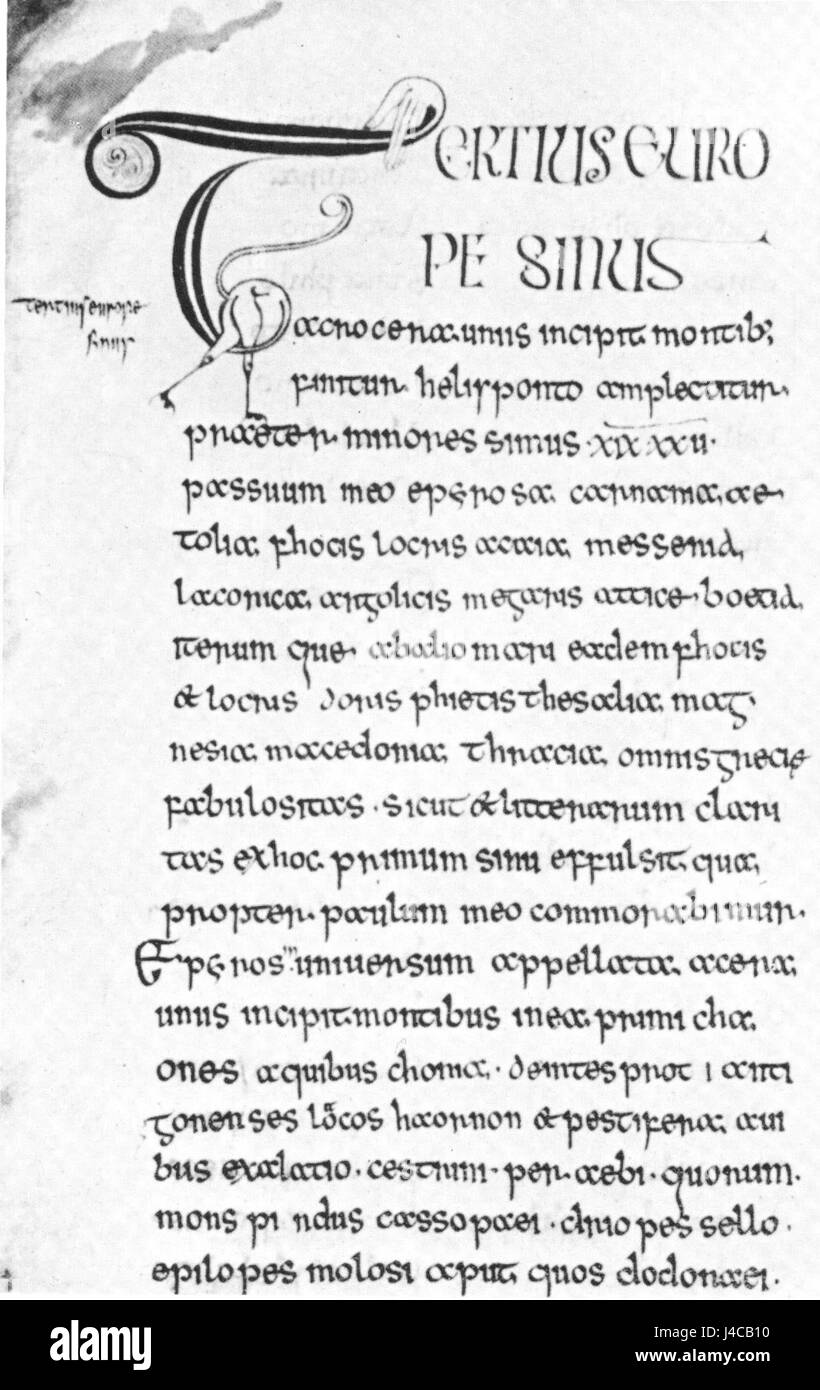 TERTIUS EURO
PE SINUS
tertius europe
sinus
acrocerauniis incipit montib;
finitur hellisponto amplectitur
praeter minores sinus XIX XXU
passuum meo epiros a carnama ae
tolia phocis locris acaia messenia
laconica argolicis megaris attice boetia
iterum que ab alio mari eadem phocis
et locris doris phietis thesalia mag
nesia macedonia thracia omnis grecie
fabulositas sicut et litterarum clari
tas ex hoc primum sinu effulsit qua
propter paulum meo commorabimur
Epiros universum appellata acera
unus incipit montibus inea primi cha
ones a quibus chonia deintes prot i anti
gonenses locos haornon et pestifera avi
bus exalatio cestium per aebi quorum
mons pi ndus cassopaei driopes sello
epilopes molosi aput quos dodonaei
alamy stock photo
J4CB10
www.alamy.com